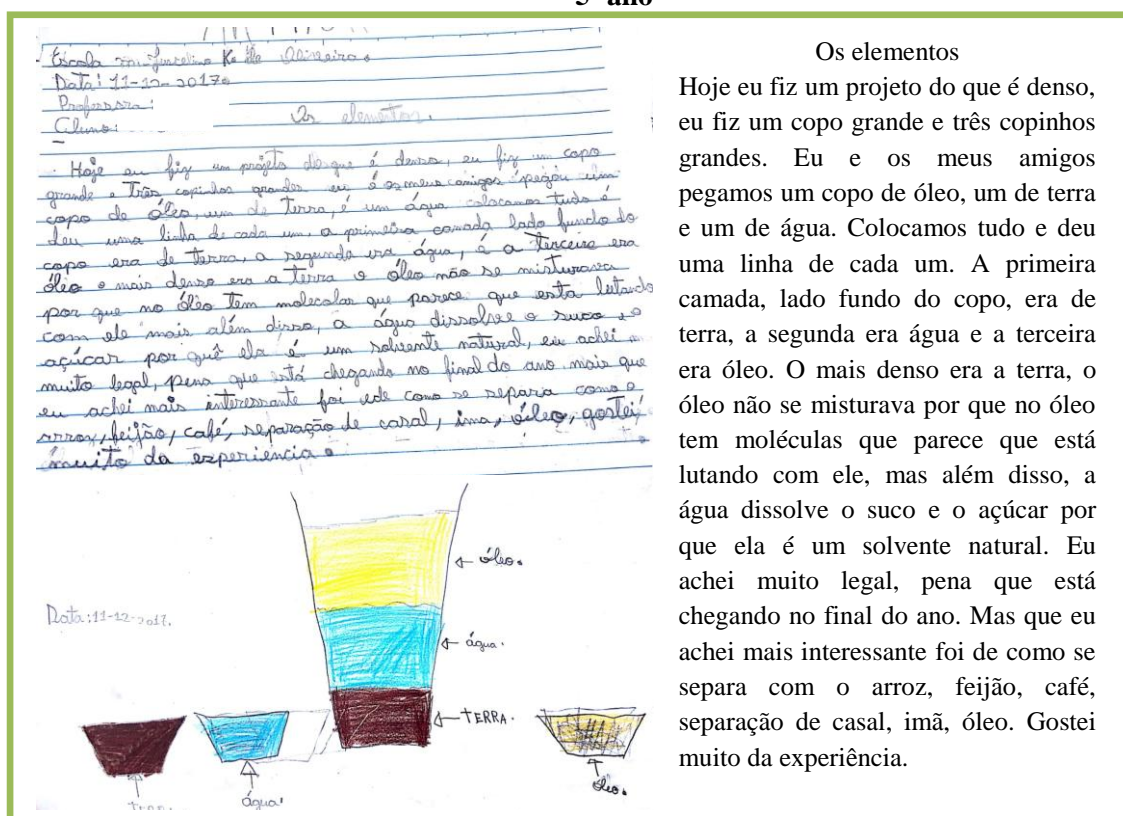 5º ano
Escola m. Juscelino K. de Oliveira.
Data: 11-12-2017.
Professora:
Aluno:
Os elementos.
Hoje eu fiz um projeto do que é denso, eu fiz um copo
grande e Três copinhos grandes eu é os meus amigos pegou um
copo de óleo, um de terra, é um água colocamos tudo é
deu uma linha de cada um, a primeira camada lado fundo do
copo era de terra, a segunda era água, é a terceira era
óleo o mais denso era a terra o óleo não se misturava
por que no óleo tem molecolas que parece que esta lutando
com ele mais além disso, a água dissolve o suco e o
açúcar por quê ela é um solvente natural, eu achei
muito legal, pena que está chegando no final do ano mais que
eu achei mais interessante foi de como se separa como o
arroz, feijão, café, separação de casal, ima, óleo, gostei
muito da experiencia.
Data: 11-12-2017.
óleo.
água.
TERRA.
terra.
água.
óleo.
Os elementos
Hoje eu fiz um projeto do que é denso,
eu fiz um copo grande e três copinhos
grandes. Eu e os meus amigos
pegamos um copo de óleo, um de terra
e um de água. Colocamos tudo e deu
uma linha de cada um. A primeira
camada, lado fundo do copo, era de
terra, a segunda era água e a terceira
era óleo. O mais denso era a terra, o
óleo não se misturava por que no óleo
tem moléculas que parece que está
lutando com ele, mas além disso, a
água dissolve o suco e o açúcar por
que ela é um solvente natural. Eu
achei muito legal, pena que está
chegando no final do ano. Mas que eu
achei mais interessante foi de como se
separa com o arroz, feijão, café,
separação de casal, imã, óleo. Gostei
muito da experiência.